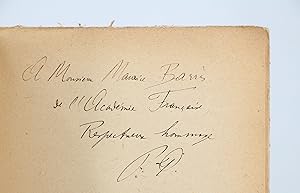 A Monsieur Maurice Barrès
de l'Académie Française
Respectueux hommage